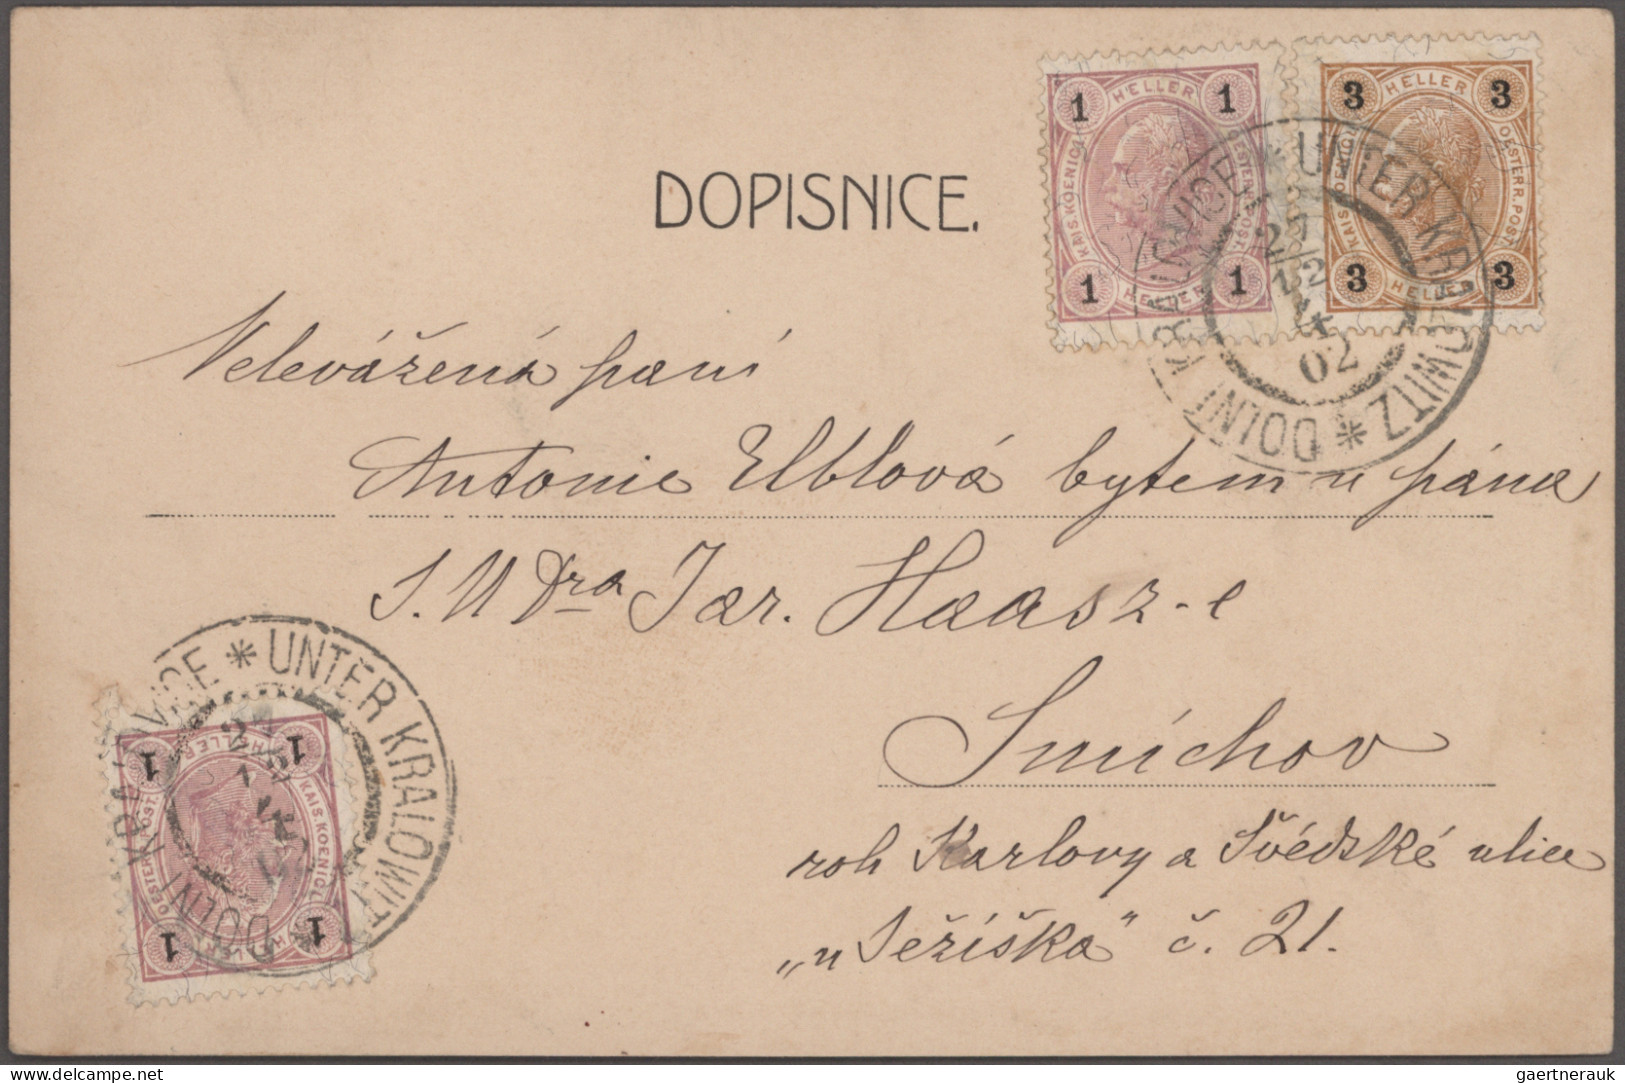 DOPISNICE.
1 HELLER 1
KAIS. KOENIGL. OESTERR. POST.
1 HELLER 1
3 HELLER 3
KAIS. KOENIGL. OESTERR. POST.
3 HELLER 3
* UNTER KRALOWITZ * DOLNÍ KRALOVICE
27
12
02
Velevážená paní
Antonie Elblová bytem u pána
J. U Dra Jar. Haasz-e
Smíchov
roh Karlovy a Švédské ulice
„u Ježíška" č. 21.
* UNTER KRALOWITZ * DOLNÍ KRALOVICE
27
12
1 HELLER 1
KAIS. KOENIGL. OESTERR. POST.
1 HELLER 1
www.delcampe.net
gaertnerauk